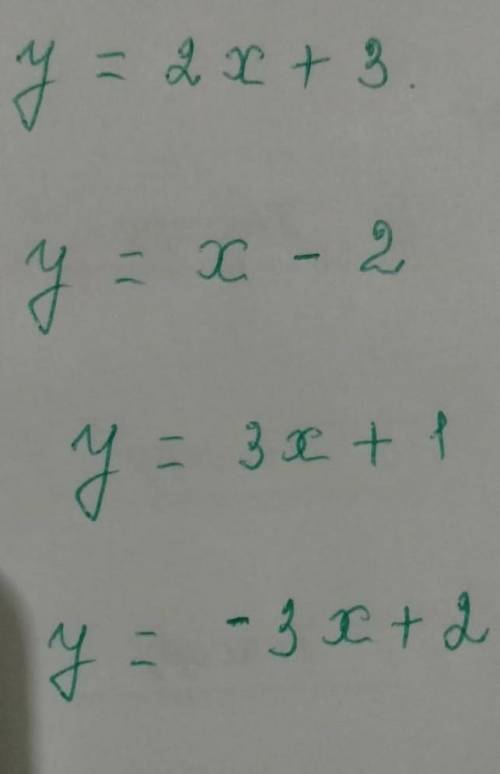 y = 2x + 3.
y = x - 2
y = 3x + 1
y = -3x + 2